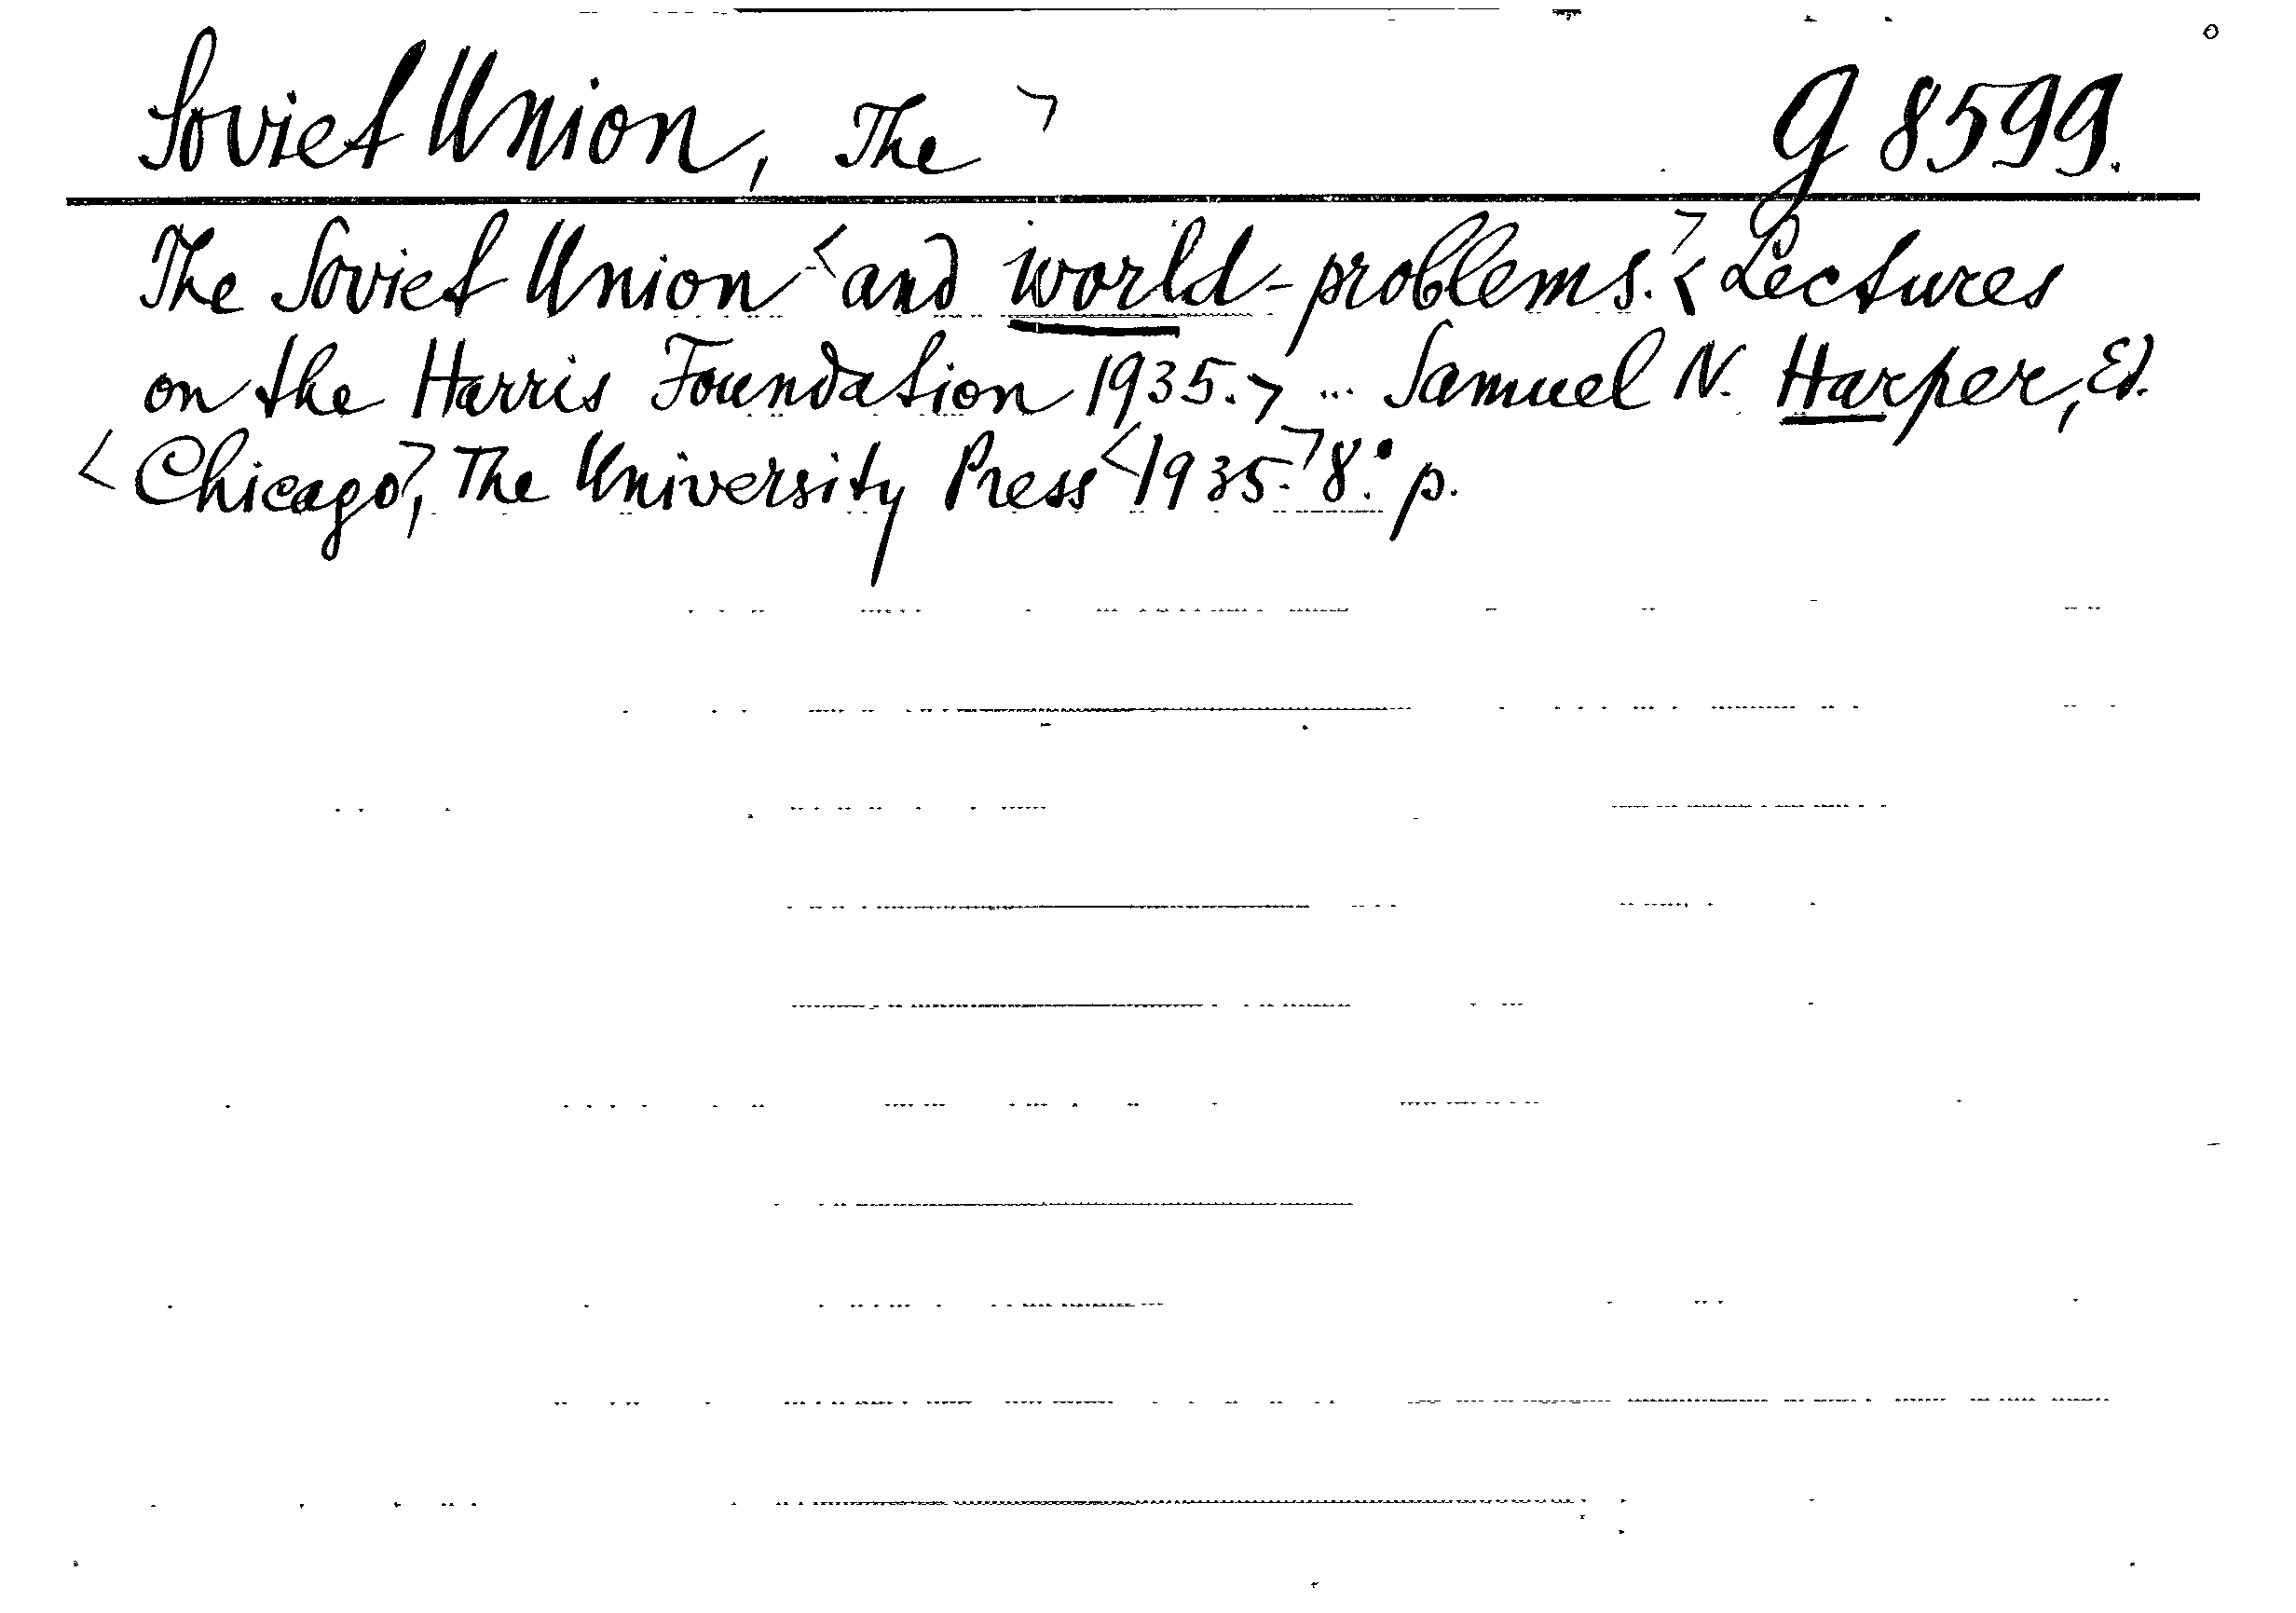 Soviet Union, The > G 8599.
The Soviet Union < and world-problems. > < Lectures
on the Harris Foundation 1935. > ... Samuel N. Harper, Ed.
< Chicago >, The University Press < 1935. > 8.° p.